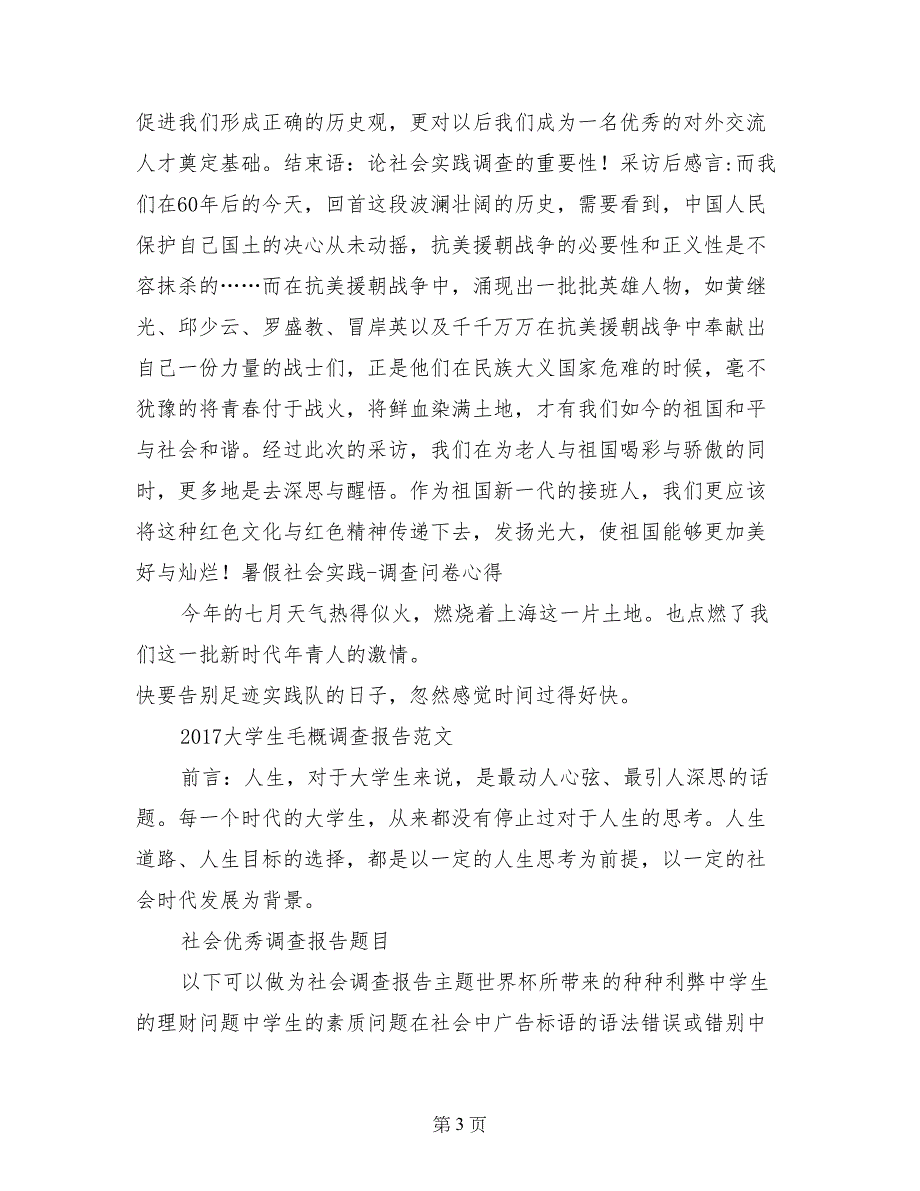 促进我们形成正确的历史观，更对以后我们成为一名优秀的对外交流
人才奠定基础。结束语：论社会实践调查的重要性！采访后感言:而我
们在60年后的今天，回首这段波澜壮阔的历史，需要看到，中国人民
保护自己国土的决心从未动摇，抗美援朝战争的必要性和正义性是不
容抹杀的……而在抗美援朝战争中，涌现出一批批英雄人物，如黄继
光、邱少云、罗盛教、冒岸英以及千千万万在抗美援朝战争中奉献出
自己一份力量的战士们，正是他们在民族大义国家危难的时候，毫不
犹豫的将青春付于战火，将鲜血染满土地，才有我们如今的祖国和平
与社会和谐。经过此次的采访，我们在为老人与祖国喝彩与骄傲的同
时，更多地是去深思与醒悟。作为祖国新一代的接班人，我们更应该
将这种红色文化与红色精神传递下去，发扬光大，使祖国能够更加美
好与灿烂！暑假社会实践-调查问卷心得
今年的七月天气热得似火，燃烧着上海这一片土地。也点燃了我
们这一批新时代年青人的激情。
快要告别足迹实践队的日子，忽然感觉时间过得好快。
2017大学生毛概调查报告范文
前言：人生，对于大学生来说，是最动人心弦、最引人深思的话
题。每一个时代的大学生，从来都没有停止过对于人生的思考。人生
道路、人生目标的选择，都是以一定的人生思考为前提，以一定的社
会时代发展为背景。
社会优秀调查报告题目
以下可以做为社会调查报告主题世界杯所带来的种种利弊中学生
的理财问题中学生的素质问题在社会中广告标语的语法错误或错别中
第 3 页